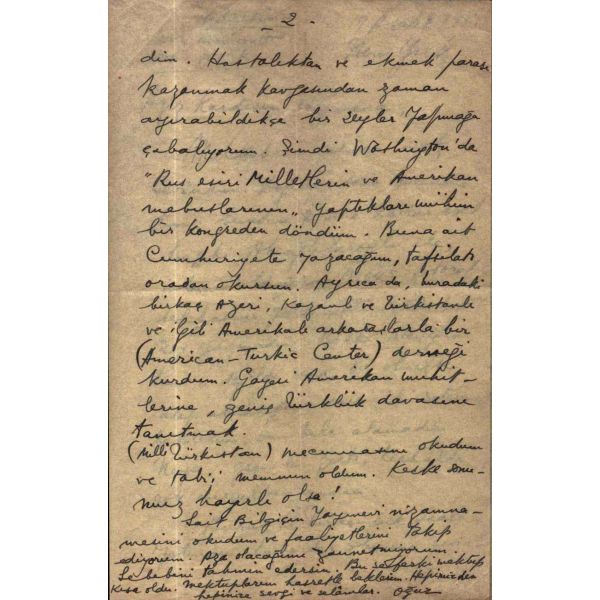 - 2 -
dim. Hastalıktan ve ekmek parası
kazanmak kavgasından zaman
ayırabildikçe bir şeyler yapmağa
çabalıyorum. Şimdi Washington'da
"Rus esiri Milletlerin ve Amerikan
mebuslarının" yaptıkları mühim
bir kongreden döndüm. Buna ait
Cumhuriyete yazacağım, tafsilatı
oradan okursun. Ayrıca da, buradaki
birkaç Azeri, Kazanlı ve Türkistanlı
ve ilgili Amerikalı arkadaşlarla bir
(American-Turkic Center) derneği
kurdum. Gayesi Amerikan muhit-
lerine, geniş Türklük davasını
tanıtmak.
(Milli Türkistan) mecmuasını okudum
ve tabii memnun oldum. Keşke sonu-
muz hayırlı olsa!
Sait Bilgiçin Yayınevi nizamna-
mesini okudum ve faaliyetlerini takip
ediyorum. Aza olacağımı zannetmiyorum.
Sebebini tahmin edersin. Bu seferki mektup
kısa oldu. Mektuplarını hasretle beklerim. Hepimizden
hepinize sevgi ve selâmlar. Oğuz